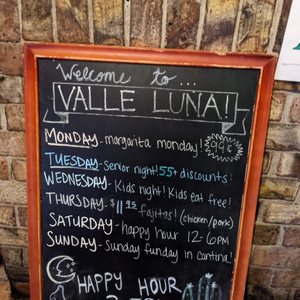 Welcome to...
VALLE LUNA!
MONDAY - margarita monday! 99¢
TUESDAY - senior night! 55+ discounts!
WEDNESDAY - Kids night! Kids eat free!
THURSDAY - $11.95 fajitas! (chicken/pork)
SATURDAY - happy hour 12-6PM
SUNDAY - Sunday funday in cantina!
HAPPY HOUR